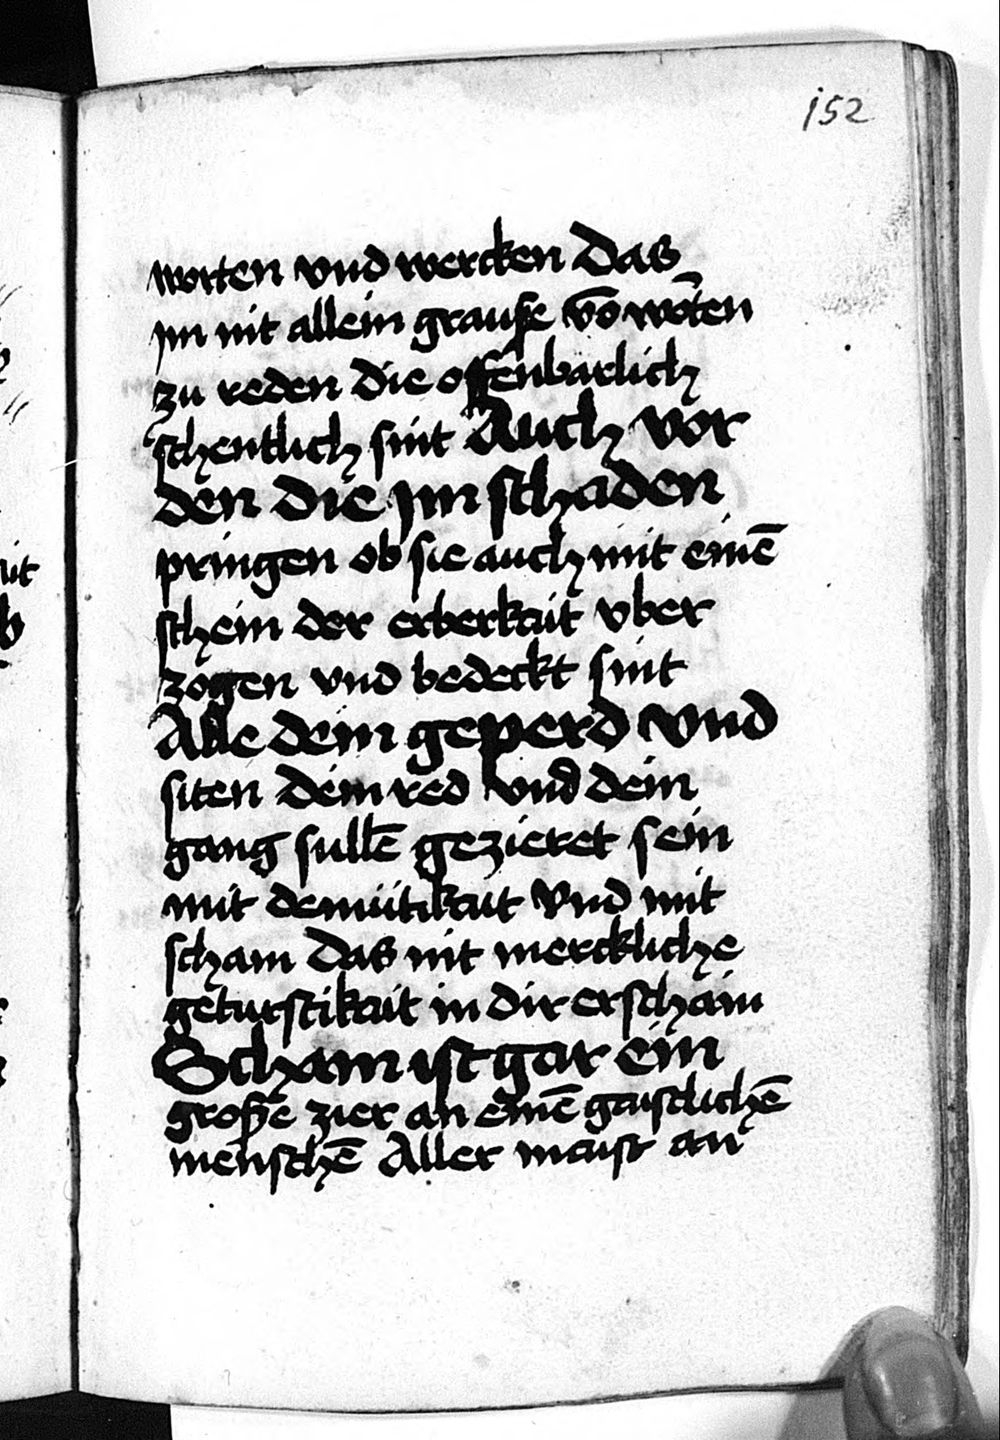 152
worten vnd wercken Das
jm nit allein grauße vō wōten
zu reden die offenbarlich
schentlich sint Auch vor
den die jm schaden
pringen ob sie auch mit einē
schein der erberkait vber
zogen vnd bedeckt sint
Alle dein geperd vnd
siten dein red vnd dein
gang sullē gezieret sein
mit demütikait vnd mit
scham das nit merckliche
geturstikait in dir erschain
Scham ist gar ein
große zier an einē gaistlichē
menschē Aller maist an